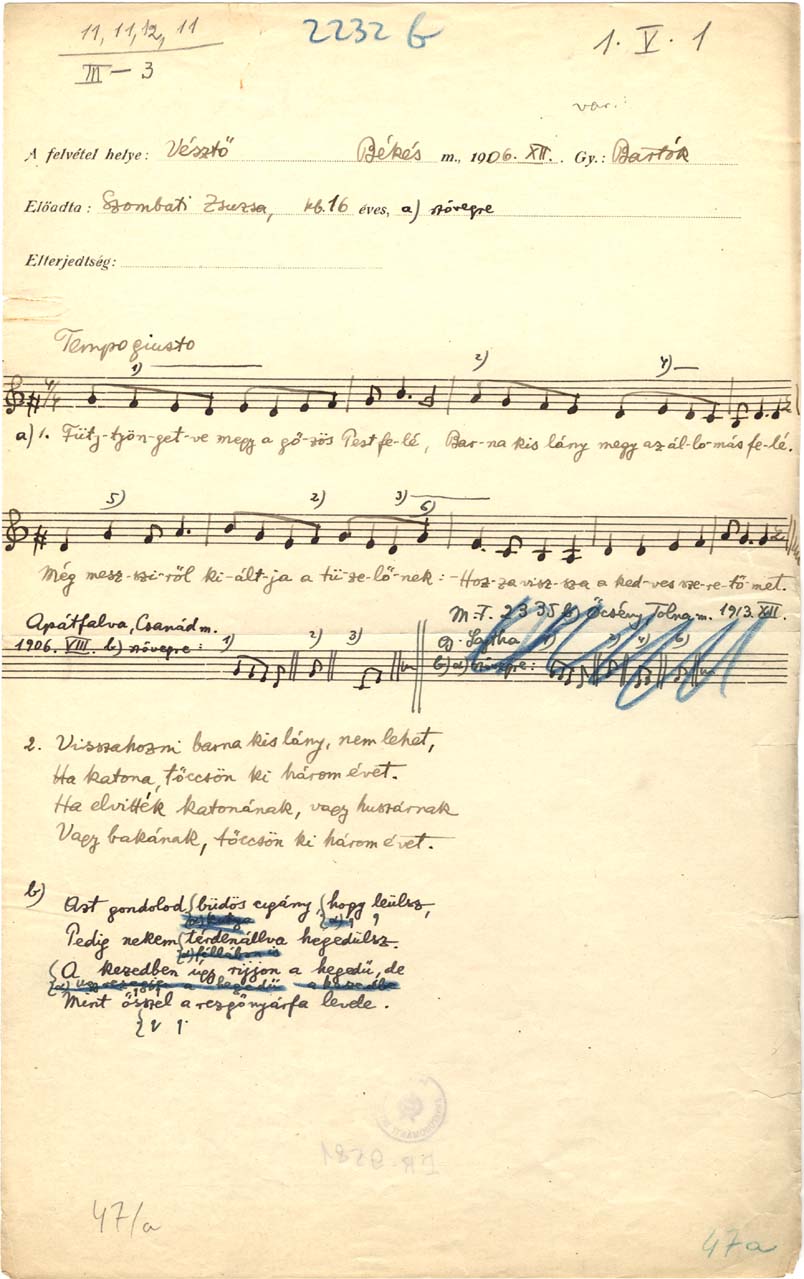 11, 11, 12, 11
2232 b
1. V. 1
III – 3
var.:
A felvétel helye: Vésztő Békés m., 1906. XII. Gy.: Bartók
Előadta: Szombati Zsuzsa, kb. 16 éves, a) szövegre
Elterjedtség:
Tempo giusto
1) 2) 4)
a) 1. Füty-työn-get-ve megy a gő-zös Pest fe-lé, Bar-na kis lány megy az ál-lo-más fe-lé.
5) 2) 3) 6)
Még mesz-szi-ről ki-ált-ja a tü-ze-lő-nek: -Hoz-za visz-sza a ked-ves sze-re-tő-met.
M.F. 2335 b) Őcsény, Tolna m. 1913. XII.
Apátfalva, Csanád m.
gy. Lajtha
1906. VIII. b) szövegre: 1) 2) 3)
2. Visszahozni barna kis lány, nem lehet,
Ha katona, tőccsön ki három évet.
Ha elvitték katonának, vagy huszárnak
Vagy bakának, tőccsön ki három évet.
b) Azt gondolod büdös cigány, hogy leülsz,
Pedig nekem térdenállva hegedülsz.
A kezedben úgy rijjon a hegedű, de
Mint ősszel a rezgőnyárfa levele.
47/a
47a